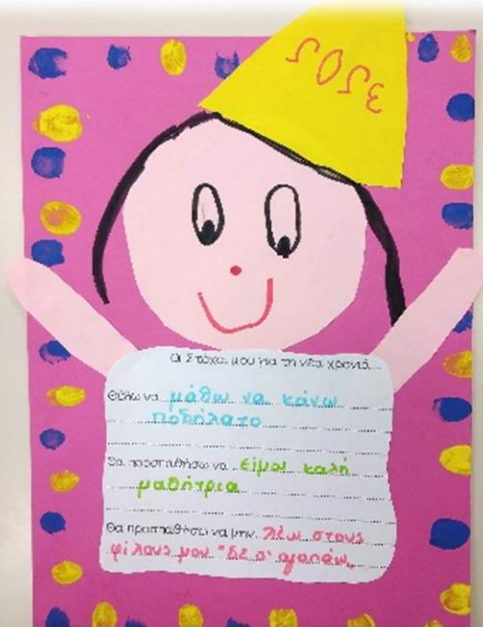 2023
Οι Στόχοι μου για τη νέα χρονιά...
Θέλω να μάθω να κάνω
ποδήλατο
Θα προσπαθήσω να είμαι καλή
μαθήτρια
Θα προσπαθήσω να μην λέω στους
φίλους μου "δε σ' αγαπάω„